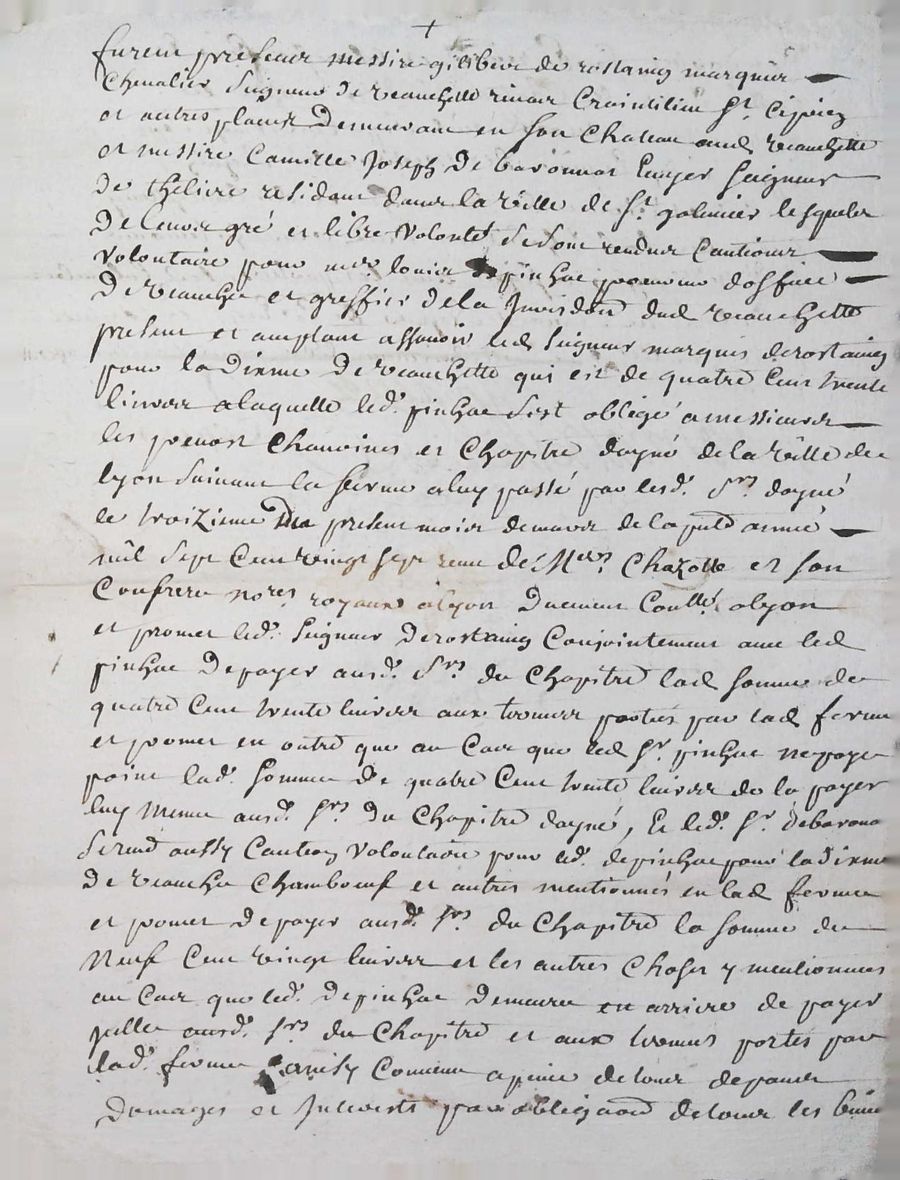 +
furent presents messire gilibert de rostaing marquis
Chevalier Seigneur de veauchette rivas Craintilieu St. Cipriez
et autres places Demeurant en son Chateau aud veauchette
et messire Camille Joseph De baronnat Ecuyer Seigneur
De theliere residant dans la ville de St. galmier lesquels
De leurs gré et libre volonté se sont rendus Cautions
volontaire pour mre. louis pinhac procureur doffice
De veauche et greffier de la Jurisdon dud veauchette
present et aceptant assavoir led seigneur marquis derostaing
pour la dixme De veauchette qui est de quatre Cent trente
livres a laquelle led. pinhac sest obligé a messieurs
les prevost Chanoines et Chapitre dayné de la ville de
lyon suivant la ferme a luy passé par lesd. Srs. dayné
le troizieme du present mois demars de la pnte année
mil Sept Cent vingt sept reçu de Mers. Chazotte et son
Confrere nores. royaux a lyon Duement Conllé. a lyon
et promet led. Seigneur Derostaing Conjointement avec led
pinhac De payer ausd. Srs. du Chapitre lad somme de
quatre Cent trente livres aux termes portés par lad ferme
et promet en outre que au Cas que led Sr. pinhac ne paye
point lad. somme de quatre Cent trente livres de la payer
luy meme ausd. Srs. Du Chapitre dayné, Et led. Sr. debarona
se rend aussy Caution volontaire pour led. depinhac pour la dixme
De veauche Chambœuf et autres mentionnés en lad ferme
et promet De payer ausd. srs. du Chapitre la somme de
Neuf Cent vingt livres et les autres Choses y mentionnées
au Cas que led. Depinhac Demeure en arriere de payer
jcelle ausd. srs. du Chapitre et aux termes portés par
lad. ferme ainsy Convenu a peine de tous depans
Domages et Interests par obligaon de tous les biens